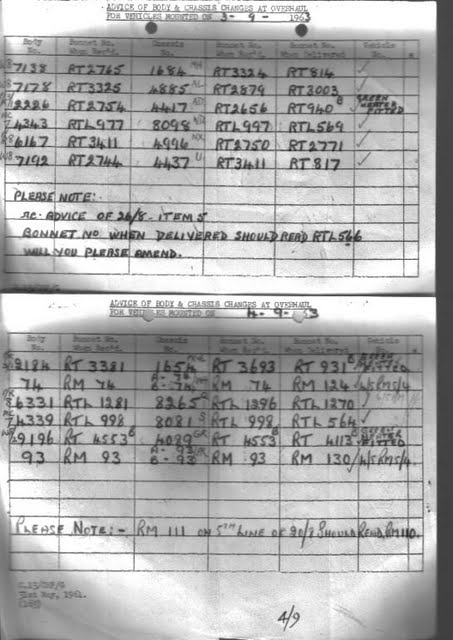 ADVICE OF BODY & CHASSIS CHANGES AT OVERHAUL
FOR VEHICLES MOUNTED ON 3-9-1963
Body No. Bonnet No. When Rec'd. Chassis No. Bonnet No. When Rec'd. Bonnet No. When Delivered Vehicle No.
7138 RT2765 1684 RT3324 RT814 ✓
7178 RT3325 4885 AL RT2879 RT3003 ✓
2226 RT2754 4417 AD RT2656 RT940 B GREEN HEATER FITTED
4343 RTL977 8098 RTL997 RTL569 ✓
6167 RT3411 4996 NX RT2750 RT2771 ✓
7192 RT2744 4437 U RT3411 RT817 ✓
PLEASE NOTE:-
RE. ADVICE OF 26/8. ITEM 5
BONNET NO WHEN DELIVERED SHOULD READ RTL566
WILL YOU PLEASE AMEND.
ADVICE OF BODY & CHASSIS CHANGES AT OVERHAUL
FOR VEHICLES MOUNTED ON 4-9-63
Body No. Bonnet No. When Rec'd. Chassis No. Bonnet No. When Rec'd. Bonnet No. When Delivered Vehicle No.
2184 RT 3381 1654 RT 3693 RT 931 B GREEN HEATER FITTED
74 RM 74 A-74 B-74 RM 74 RM 124 4/5 RMS/4
6331 RTL 1281 8265 RTL 1296 RTL 1270 ✓
4339 RTL 998 8081 S RTL 998 RTL 564 ✓
9196 RT 4553 B 4089 GR RT 4553 B RT 4113 B GREEN HEATER FITTED
93 RM 93 A-93 B-93 RM 93 RM 130 4/5 RMS/4
PLEASE NOTE:- RM 111 ON 5TH LINE OF 20/8 SHOULD READ RM110.
31st May, 1961.
(165)
4/9